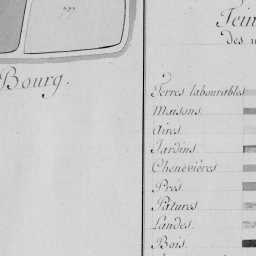 Bourg.
Tein
des
Terres labourables
Maisons
Aires
Jardins
Chenevières
Prés
Patures
Landes
Bois